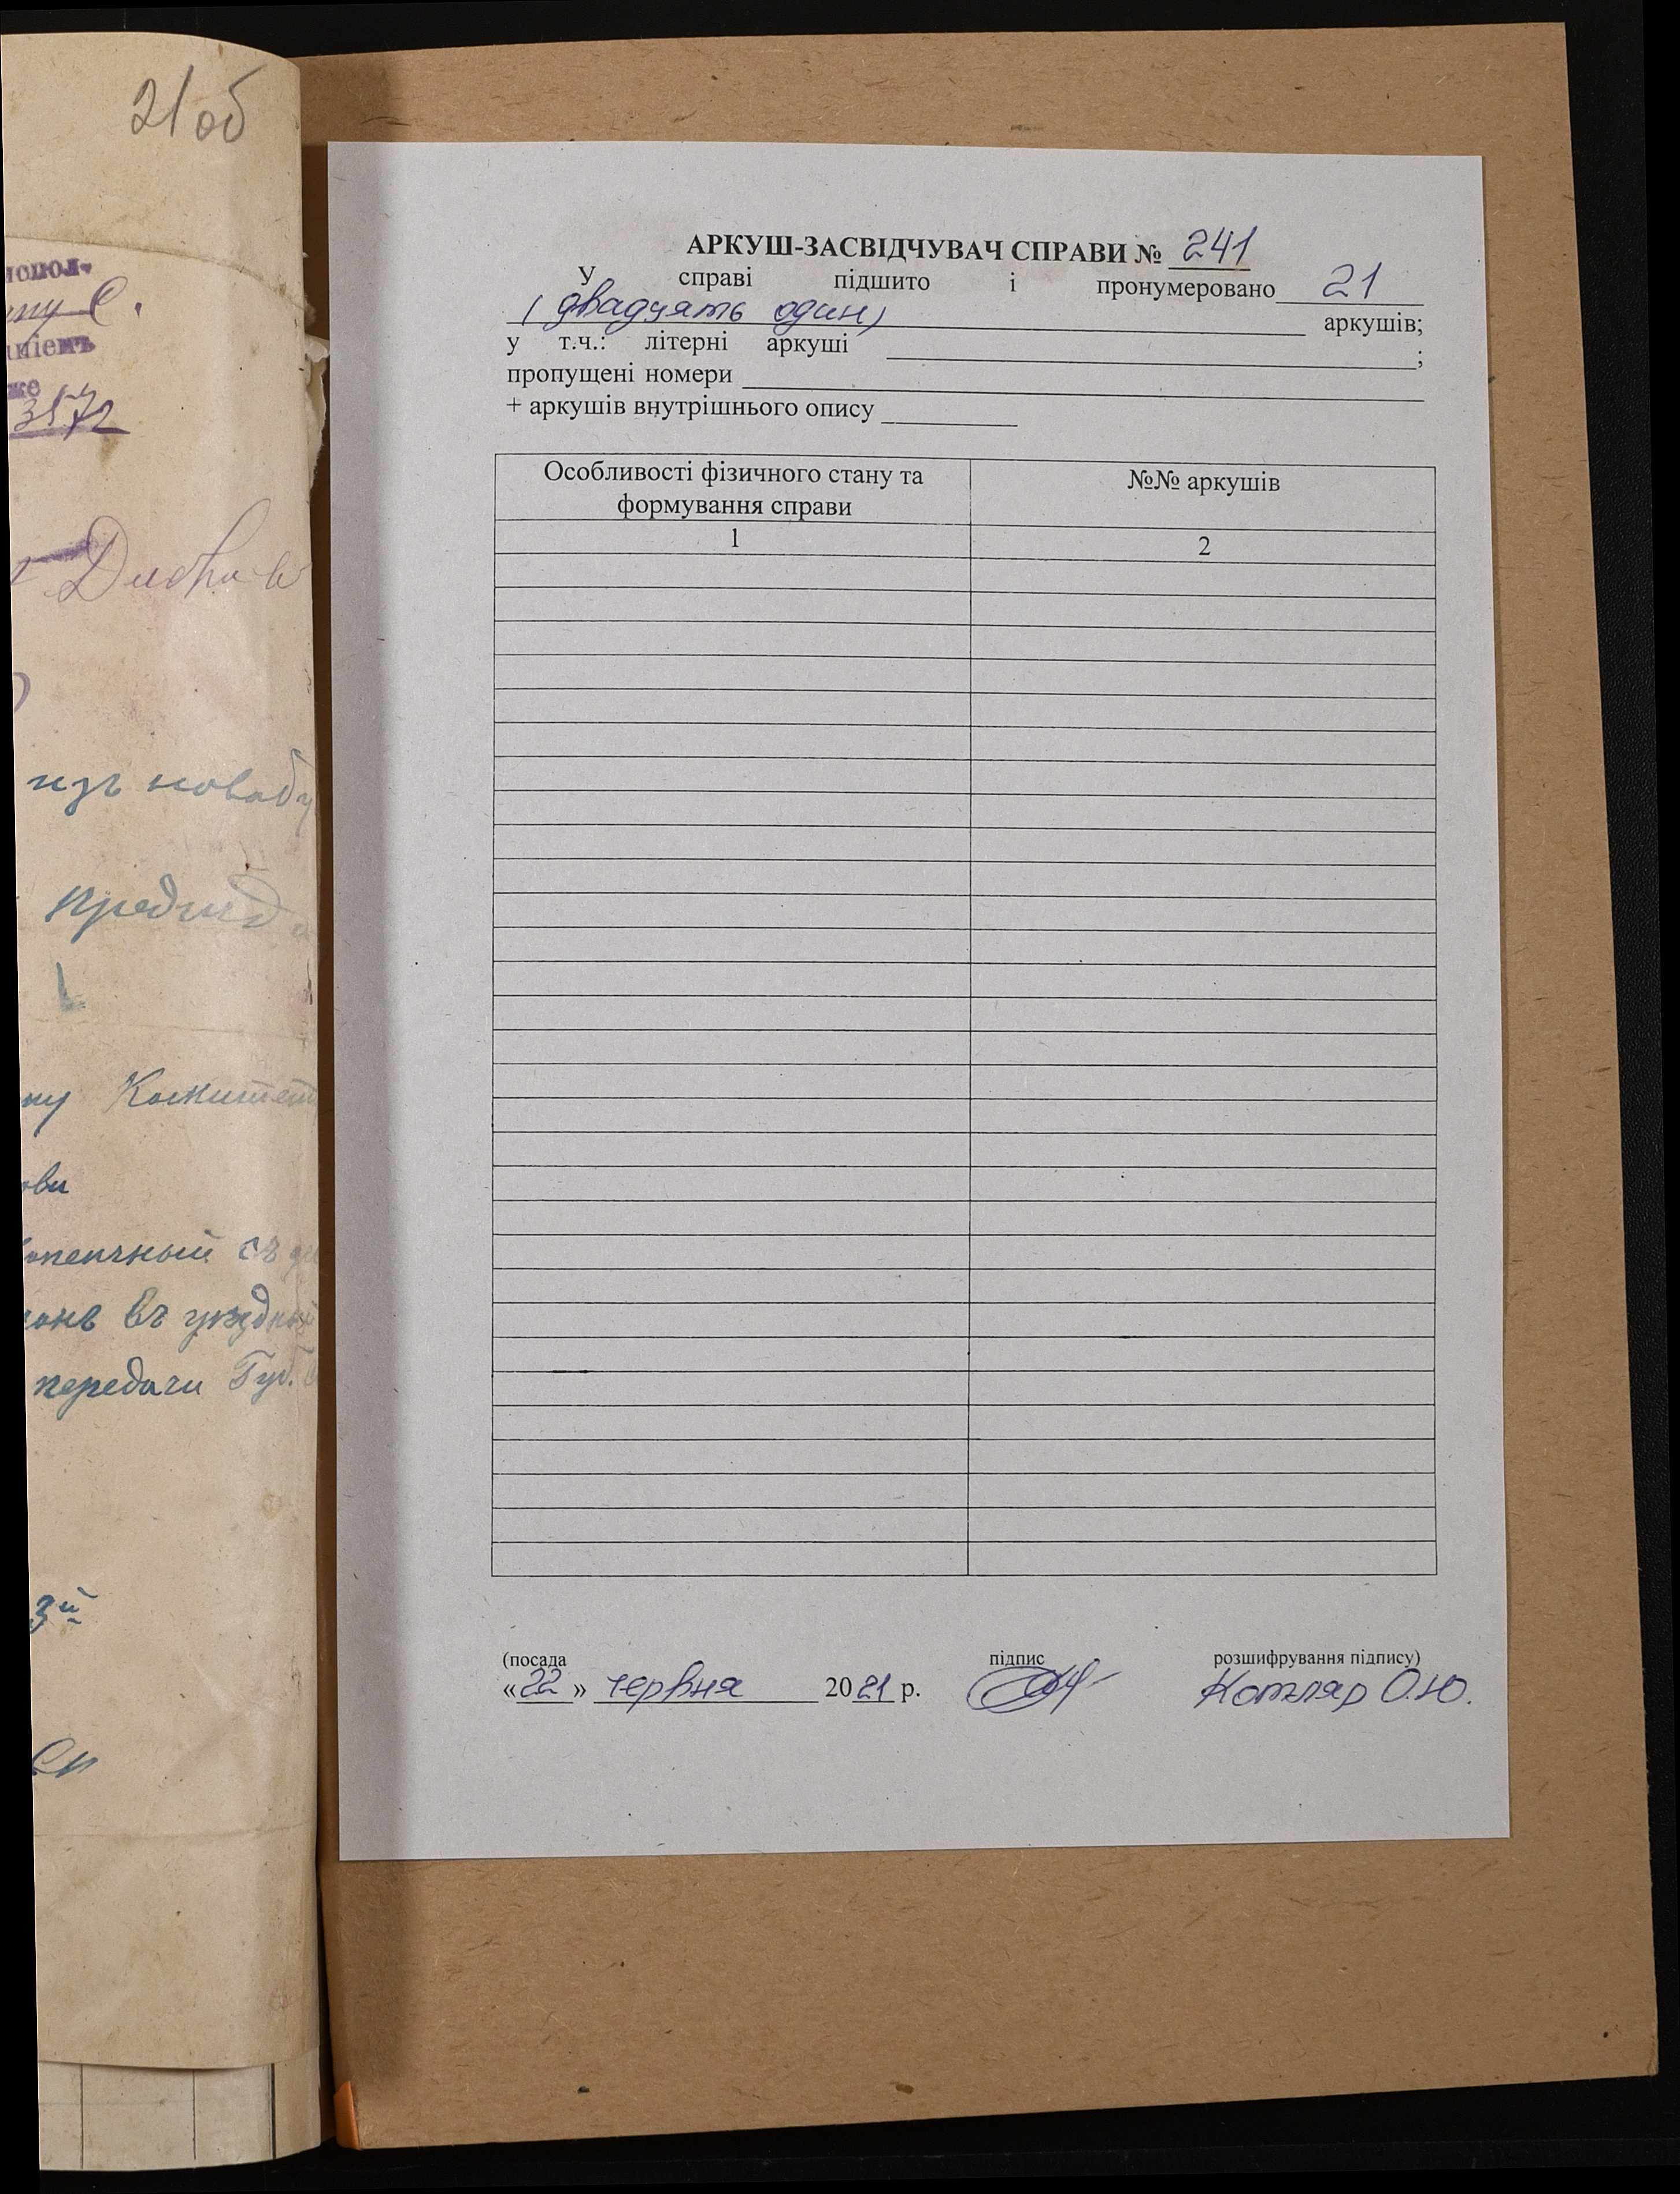 21 об
испол-
ніемъ
же
3572
изъ
Комитет
передачи Губ.
3й
АРКУШ-ЗАСВІДЧУВАЧ СПРАВИ № 241
У справі підшито і пронумеровано 21
(двадцять один) аркушів;
у т.ч.: літерні аркуші ;
пропущені номери
+ аркушів внутрішнього опису
Особливості фізичного стану та
формування справи
№№ аркушів
1
2
(посада підпис розшифрування підпису)
«22» червня 2021 р. Котляр О.Ю.